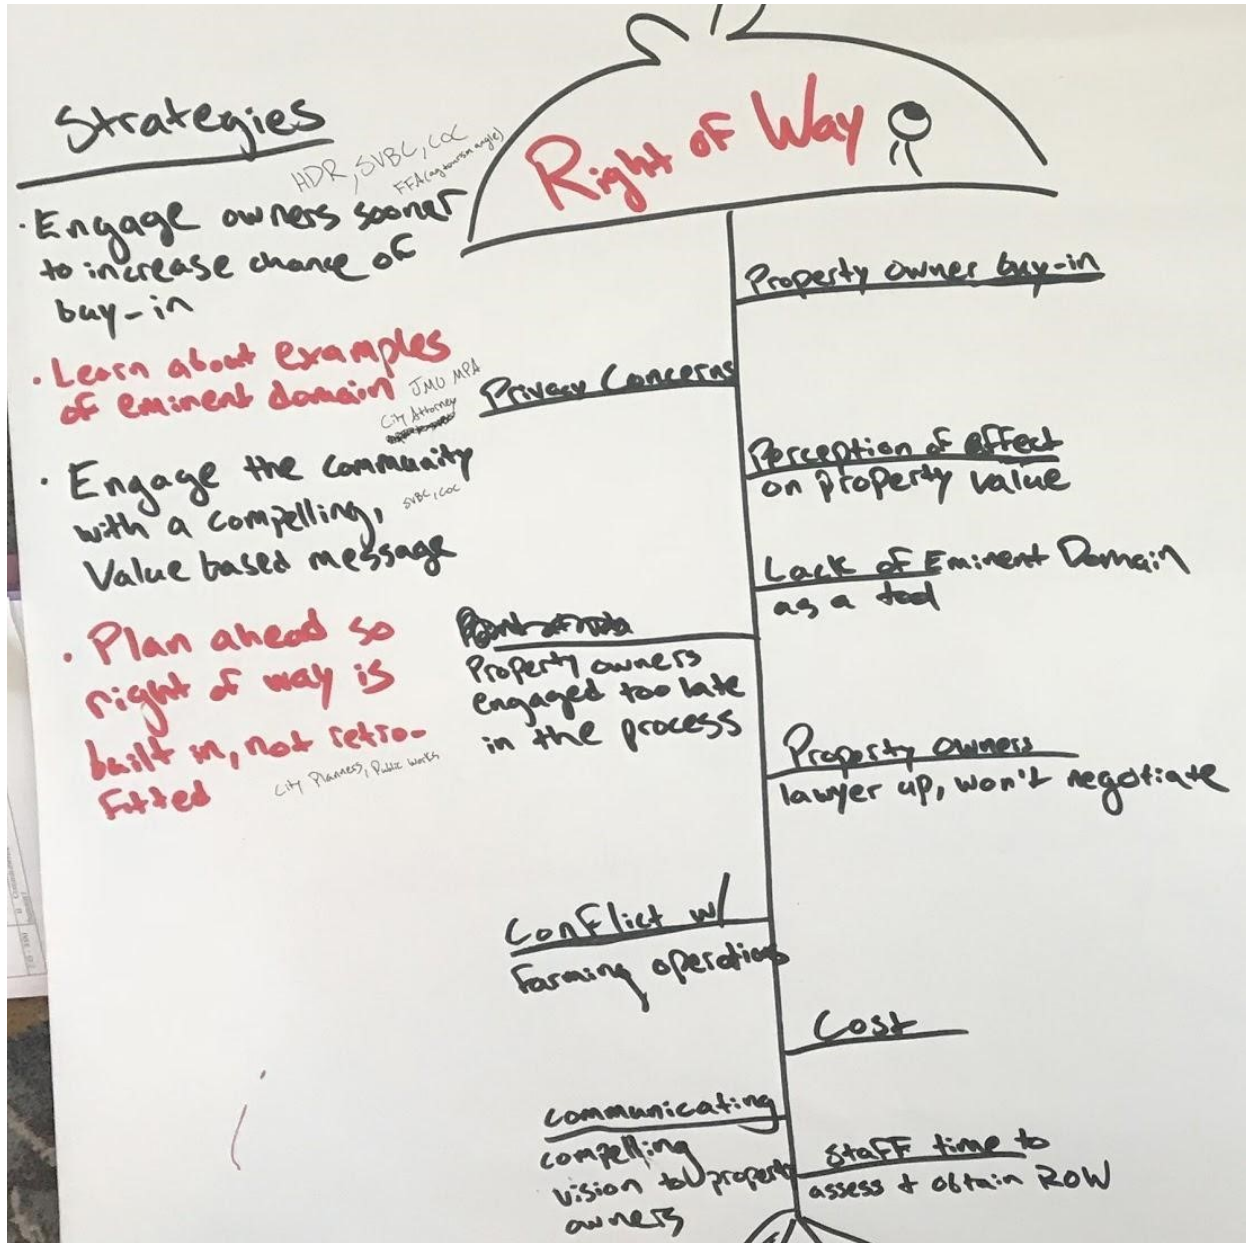 Strategies
HDR, SVBC, COC
FFA (agtourism angle)
• Engage owners sooner
to increase chance of
buy-in
• Learn about examples
of eminent domain JMU MPA
City Attorney
• Engage the community
with a compelling, SVBC, COC
Value based message
• Plan ahead so
right of way is
built in, not retro-
fitted City Planners, Public Works
Right of Way
Property owner buy-in
Privacy Concerns
Perception of effect
on property value
Lack of Eminent Domain
as a tool
Property owners
engaged too late
in the process
Property owners
lawyer up, won't negotiate
Conflict w/
farming operations
Cost
communicating
compelling
vision to property
owners
staff time to
assess + obtain ROW